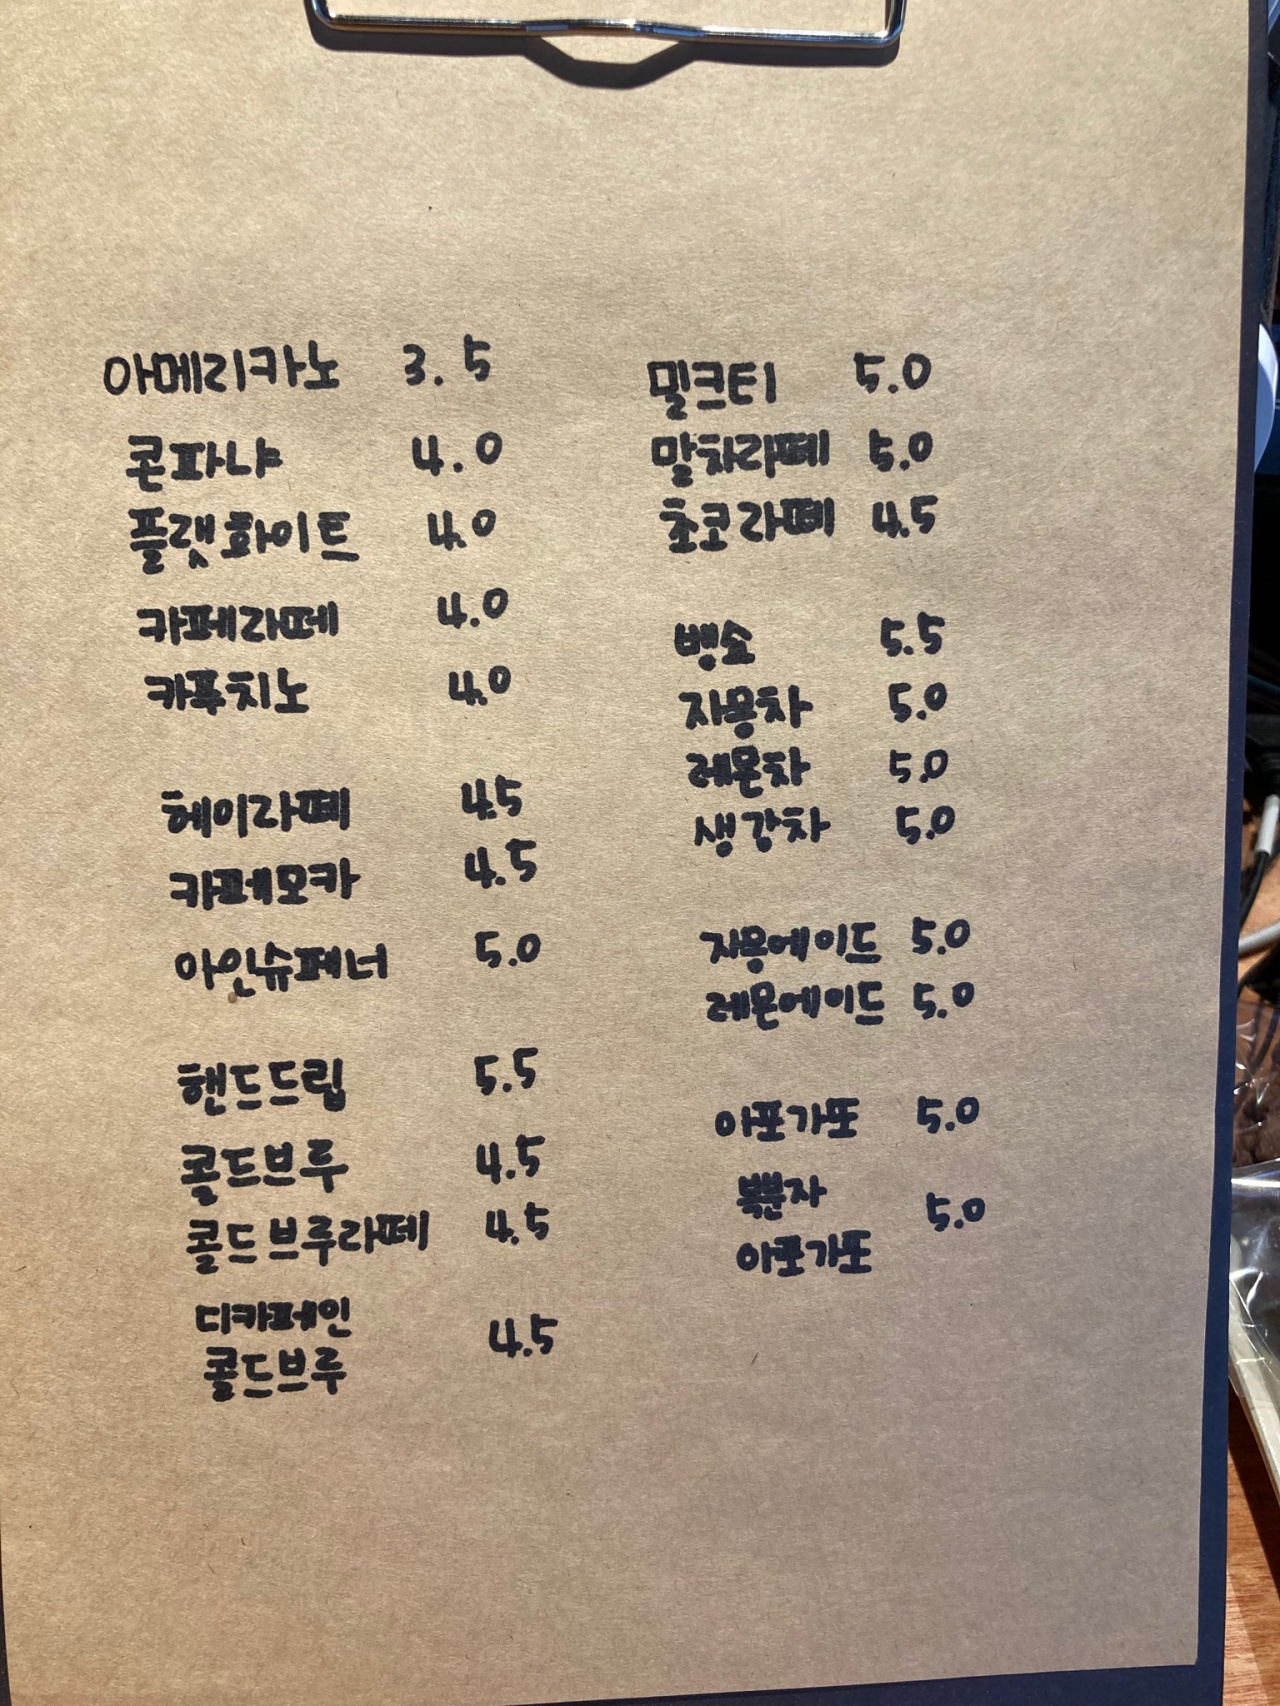 아메리카노 3.5
콘파냐 4.0
플랫화이트 4.0
카페라떼 4.0
카푸치노 4.0
헤이라떼 4.5
카페모카 4.5
아인슈페너 5.0
핸드드립 5.5
콜드브루 4.5
콜드브루라떼 4.5
디카페인
콜드브루 4.5
밀크티 5.0
말차라떼 5.0
초코라떼 4.5
뱅쇼 5.5
자몽차 5.0
레몬차 5.0
생강차 5.0
자몽에이드 5.0
레몬에이드 5.0
아포가또 5.0
복분자 5.0
아포가또